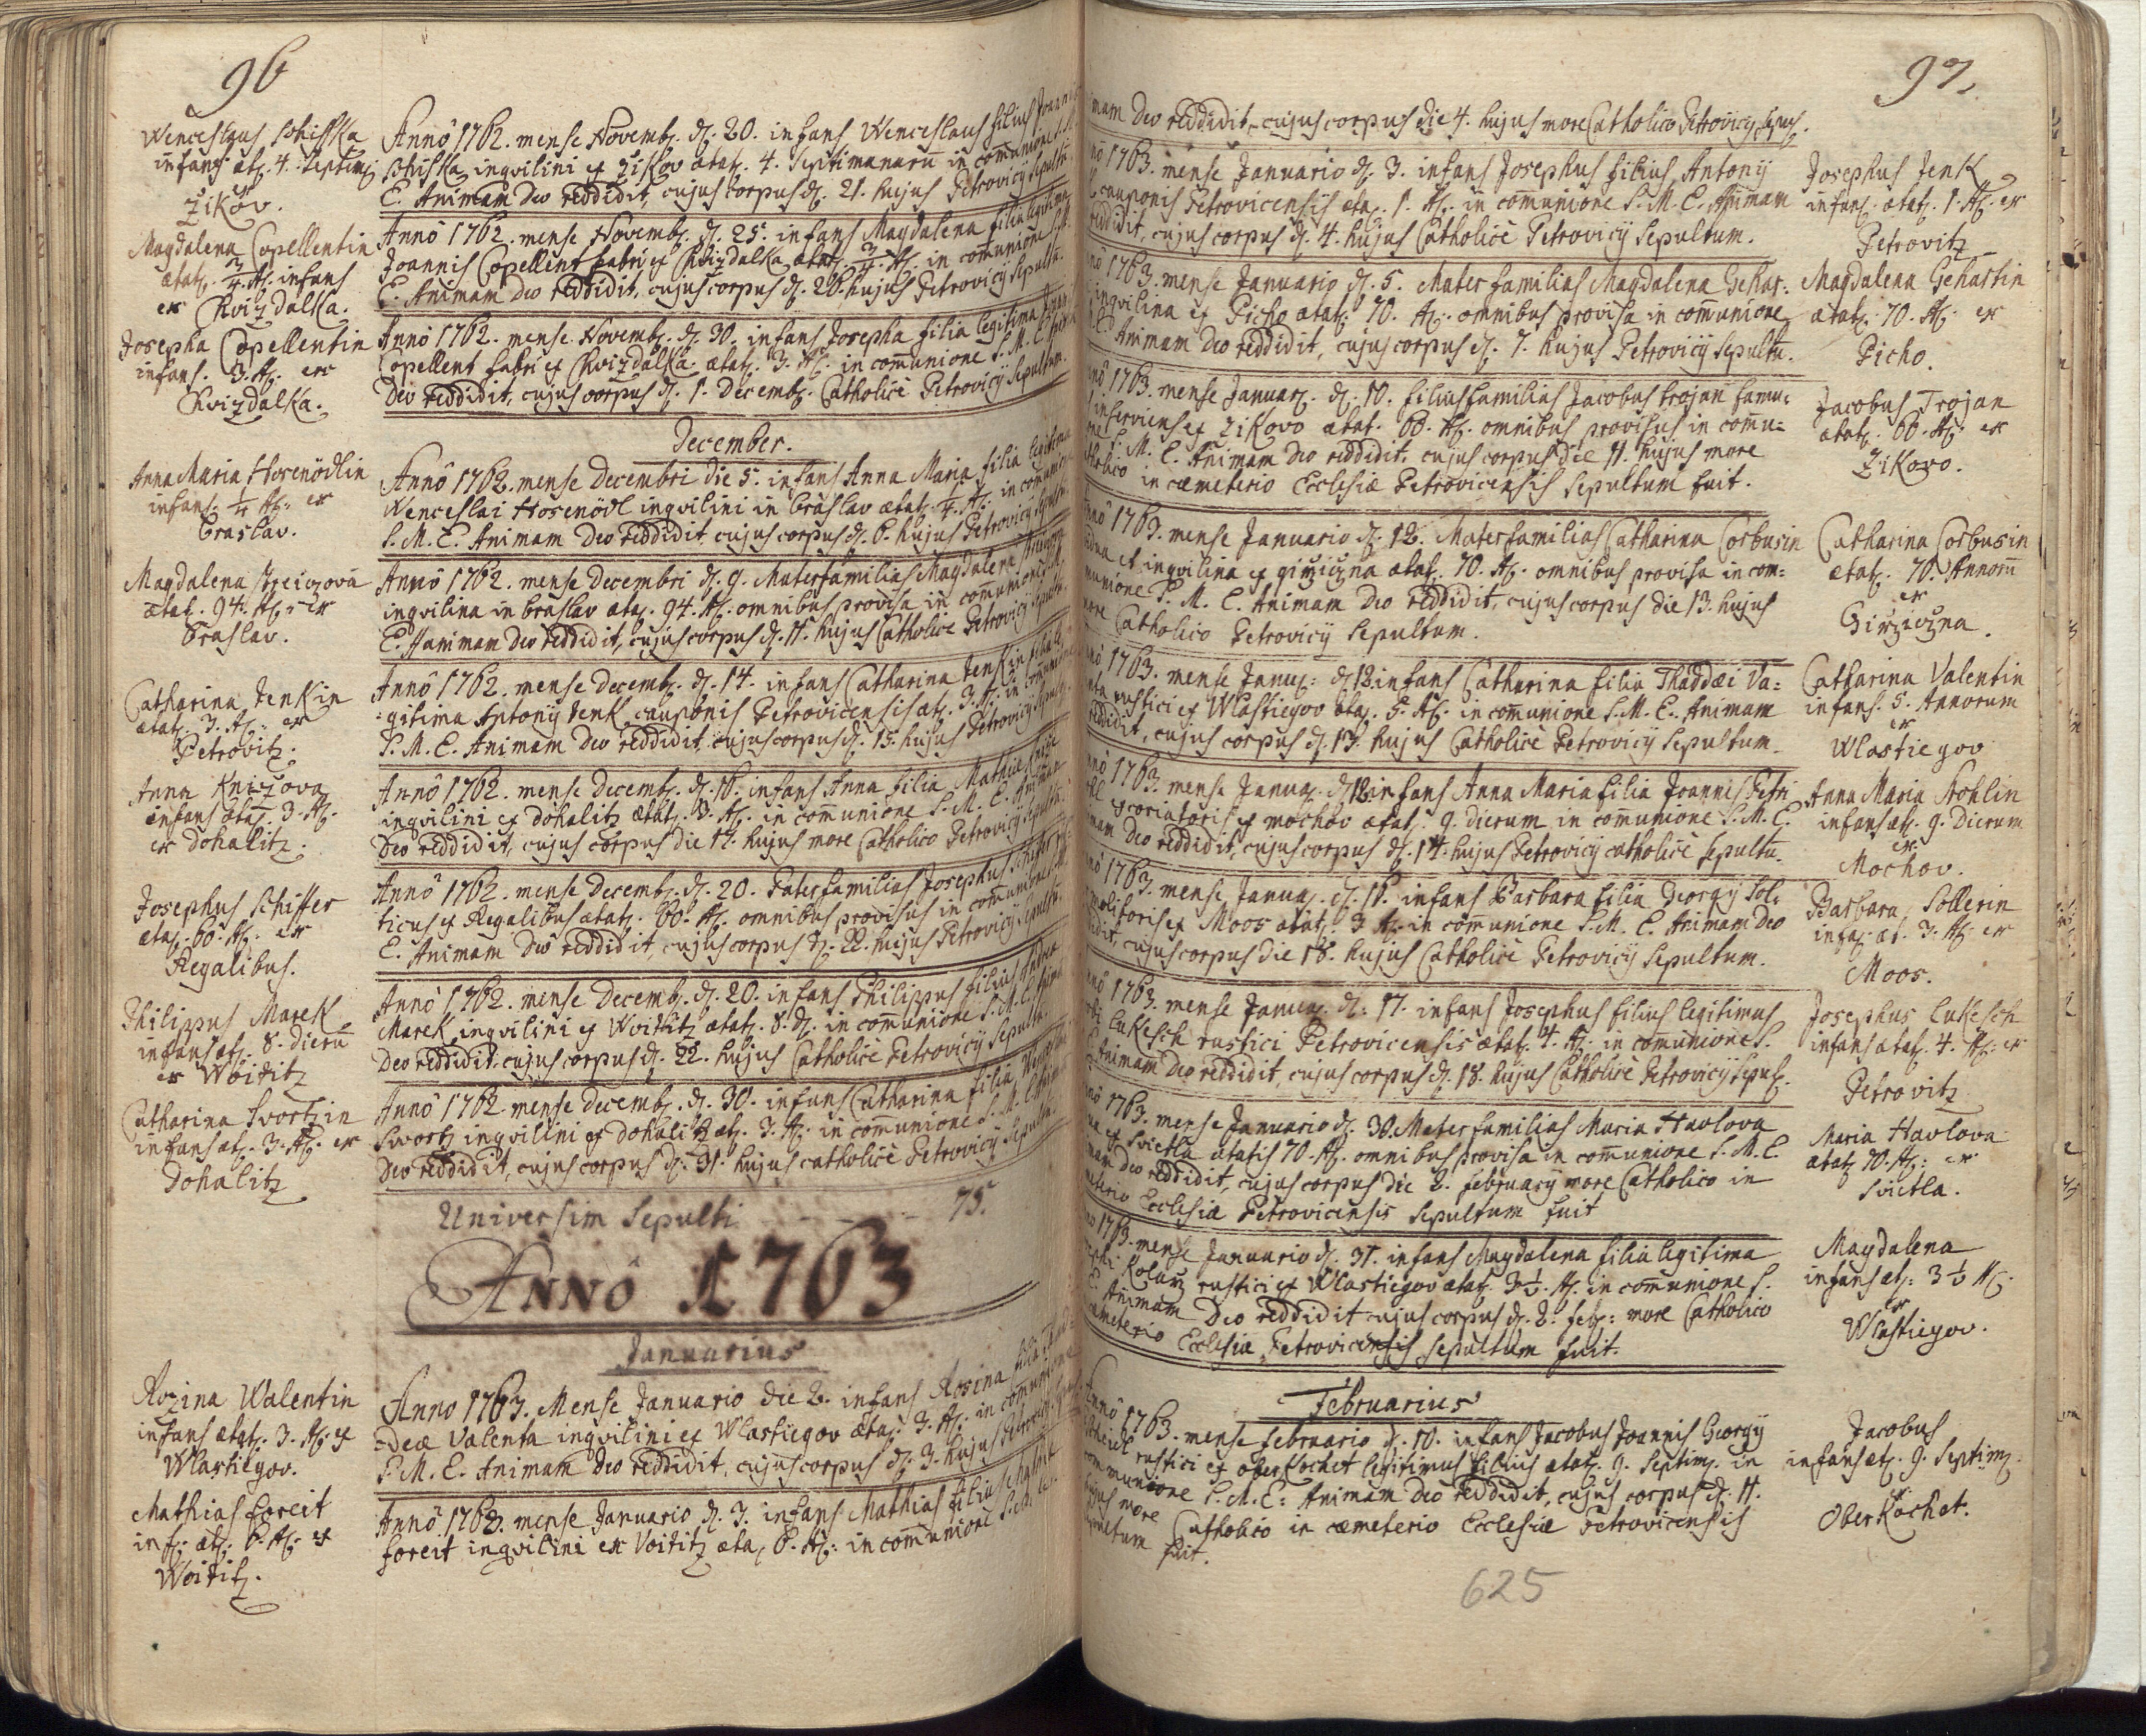 96
Wenceslaus Schiska
infans æt. 4. Septim.
ex
Zikov.
Anno 1762. mense Novemb. d. 20. infans Wenceslaus filius Joan
Schiska inqvilini ex Zikov ætat. 4. Septimanarū in com̄unione S.
E. Animam Deo reddidit, cujus corpus d. 21. hujus Petrovicÿ Sepultū.
Magdalena Copellentin
ætat. 3/4 A. infans
ex Chvizdalka.
Anno 1762. mense Novemb. d. 25. infans Magdalena filia legitima
Joannis Copellent fabri ex Chvizdalka ætat. 3/4. A. in com̄unione S. M.
E. Animam Deo reddidit, cujus corpus d. 26. hujus Petrovicÿ Sepultū.
Josepha Copellentin
infans. 3. A. ex
Chvizdalka.
Anno 1762. mense Novemb. d. 30. infans Josepha filia legitima Joan
Copellent fabri ex Chvizdalka. ætat. 3. A. in com̄unione S. M. E.
Deo reddidit, cujus corpus d. 1. Decemb. Catholicè Petrovicÿ Sepultum.
December.
Anna Maria Hosenödlin
infans. 1/4 A. ex
Braslav.
Anno 1762. mense Decembri die 5. infans Anna Maria filia legitima
Wenceslai Hosenödl inqvilini in Braslav ætat. 1/4. A. in com̄unione
S. M. E. Animam Deo reddidit, cujus corpus d. 6. hujus Petrovicÿ Sepultū.
Magdalena
ætat. 94. A. ex
Braslav.
Anno 1762. mense Decembri d. 9. Materfamilias Magdalena
inqvilina in Braslav ætat. 94. A. omnibus provisa in com̄unione S. M.
E. Animam Deo reddidit, cujus corpus d. 11. hujus Catholicè Petrovicÿ Sepultū.
Catharina Jenkin
ætat. 3. A. ex
Petrovitz.
Anno 1762. mense Decemb. d. 14. infans Catharina Jenkin filia le
gitima Antonÿ Jenk cauponis Petrovicensis æt. 3. A. in com̄unione
S. M. E. Animam Deo reddidit, cujus corpus d. 15. hujus Petrovicÿ Sepult.
Anna Knizova
infans ætat. 3. A.
ex Dohalitz.
Anno 1762. mense Decemb. d. 16. infans Anna filia Mathiæ
inqvilini ex Dohalitz ætat. 3. A. in com̄unione S. M. E. Animam
Deo reddidit, cujus corpus die 17. hujus more Catholico Petrovicÿ Sepultū.
Josephus Schiffer
ætat. 60. A. ex
Regalibus.
Anno 1762. mense Decemb. d. 20. Paterfamilias Josephus Schiffer rus
ticus ex Regalibus ætat. 60. A. omnibus provisus in com̄unione S. M.
E. Animam Deo reddidit, cujus corpus d. 22. hujus Petrovicÿ Sepultū.
Philippus Marek
infans æt. 8. Dierū
ex Woititz
Anno 1762. mense Decemb. d. 20. infans Philippus filius Andreæ
Marek inqvilini ex Woititz ætat. 8. d. in com̄unione S. M. E. Anima
Deo reddidit, cujus corpus d. 22. hujus Catholicè Petrovicÿ Sepultū.
Catharina Svortzin
infans æt. 3. A. ex
Dohalitz
Anno 1762. mense Decemb. d. 30. infans Catharina filia
Swortz inqvilini ex Dohalitz æt. 3. A. in com̄unione S. M. E.
Deo reddidit, cujus corpus d. 31. hujus catholicè Petrovicÿ Sepultū.
Universim Sepulti - - - - 75.
ANNÔ 1763
Januarius
Rozina Walentin
infans ætat. 3. A. ex
Wlastiegov.
Anno 1763. Mense Januario die 2. infans Rosina filia Thad
dæi Valenta inqvilini ex Wlastiegov ætat. 3. A. in com̄unione
S. M. E. Animam Deo reddidit, cujus corpus d. 3. hujus Petrovicÿ
Mathias Foreit
inf. æt. 6. A. ex
Woitit.
Anno 1763. mense Januario d. 3. infans Mathias filius
Foreit inqvilini ex Voititz ætat. 6. A. in com̄unione S. M. E.
97.
nimam Deo reddidit, cujus corpus die 4. hujus more Catholico Petrovicÿ Sepult.
nô 1763. mense Januario d. 3. infans Josephus filius Antonÿ
cauponis Petrovicensis ætat. 1. A. in com̄unione S. M. E. Animam
reddidit, cujus corpus d. 4. hujus Catholicè Petrovicÿ Sepultum.
Josephus Jenk
infans. ætat. 1. A. ex
Petrovitz
nô 1763. mense Januario d. 5. Mater familias Magdalena Gehar:
inqvilina ex Picho ætat. 70. A. omnibus provisa in com̄unione
Animam Deo reddidit, cujus corpus d. 7. hujus Petrovicÿ Sepultū.
Magdalena Gehartin
ætat. 70. A. ex
Picho.
nô 1763. mense Januar. d. 10. filiusfamilias Jacobus Trojan famu:
inserviens ex Zikovo ætat. 66. A. omnibus provisus in com̄u=
ne S. M. E. Animam Deo reddidit, cujus corpus die 11. hujus more
tholico in cæmeterio Ecclesiæ Petrovicensis Sepultum fuit.
Jacobus Trojan
ætat. 66. A. ex
Zikovo.
nnô 1763. mense Januario d. 12. Materfamilias Catharina Corbusin
vidua et inqvilina ex Girziczna ætat. 70. A. omnibus provisa in com=
munione S. M. E. Animam Deo reddidit, cujus corpus die 13. hujus
more Catholico Petrovicÿ Sepultum.
Catharina Corbusin
ætat. 70. Annorū
ex
Girziczna.
nô 1763. mense Janu: d. 12. infans Catharina filia Thaddæi Va=
lenta rustici ex Wlastiegov ætat. 5. A. in com̄unione S. M. E. Animam
reddidit, cujus corpus d. 13. hujus Catholicè Petrovicÿ Sepultum.
Catharina Valentin
infans. 5. Annorum
ex
Wlastiegov
nnô 1763. mense Janua. d. 12. infans Anna Maria filia Joannis Petri
excoriatoris ex Mochov ætat. 9. dierum in com̄unione S. M. E.
nimam Deo reddidit, cujus corpus d. 14. hujus Petrovicÿ catholicè Sepultū.
Anna Maria Strohlin
infans æt. 9. Dierum
ex
Mochov.
nô 1763. mense Janua. d. 16. infans Barbara filia Georgÿ Sol:
molitoris ex Moos ætat. 3 A. in com̄unione S. M. E. Animam Deo
didit, cujus corpus die 18. hujus Catholicè Petrovicÿ Sepultum.
Barbara Sollerin
infa. æt. 3. A. ex
Moos.
nnô 1763. mense Janua. d. 17. infans Josephus filius legitimus
Lukesch rustici Petrovicensis ætat. 4. A. in com̄unione S.
Animam Deo reddidit, cujus corpus d. 18. hujus Catholicè Petrovicÿ Sepult.
Josephus Lukesch
infans ætat. 4. A. ex
Petrovitz
nnô 1763. mense Januario d. 30. Mater familias Maria Havlova
ex Svietla ætatis 70. A. omnibus provisa in com̄unione S. M. E.
nimam Deo reddidit, cujus corpus die 2. februarÿ more Catholico in
meterio Ecclesiæ Petrovicensis Sepultum fuit
Maria Havlova
ætat. 70. A. ex
Svietla.
nno 1763. mense Januario d. 31. infans Magdalena filia legitima
sephi Kolarz rustici ex Wlastiegov ætat. 3 1/2. A. in com̄unione S.
E. Animam Deo reddidit cujus corpus d. 2. feb: more Catholico
cæmeterio Ecclesiæ Petrovicensis Sepultum fuit.
Magdalena
infans æt: 3 1/2 A.
ex
Wlastiegov.
Februarius
Annô 1763. mense februario d. 10. infans Jacobus Joannis Georgÿ
rustici ex Oberkochet legitimus filius ætat. 9. Septim. in
communione S. M. E: Animam Deo reddidit, cujus corpus d. 11.
hujus more Catholico in cæmeterio Ecclesiæ Petrovicensis
Sepultum fuit.
Jacobus
infans æt. 9. Septim.
ex
Oberkochet.
625